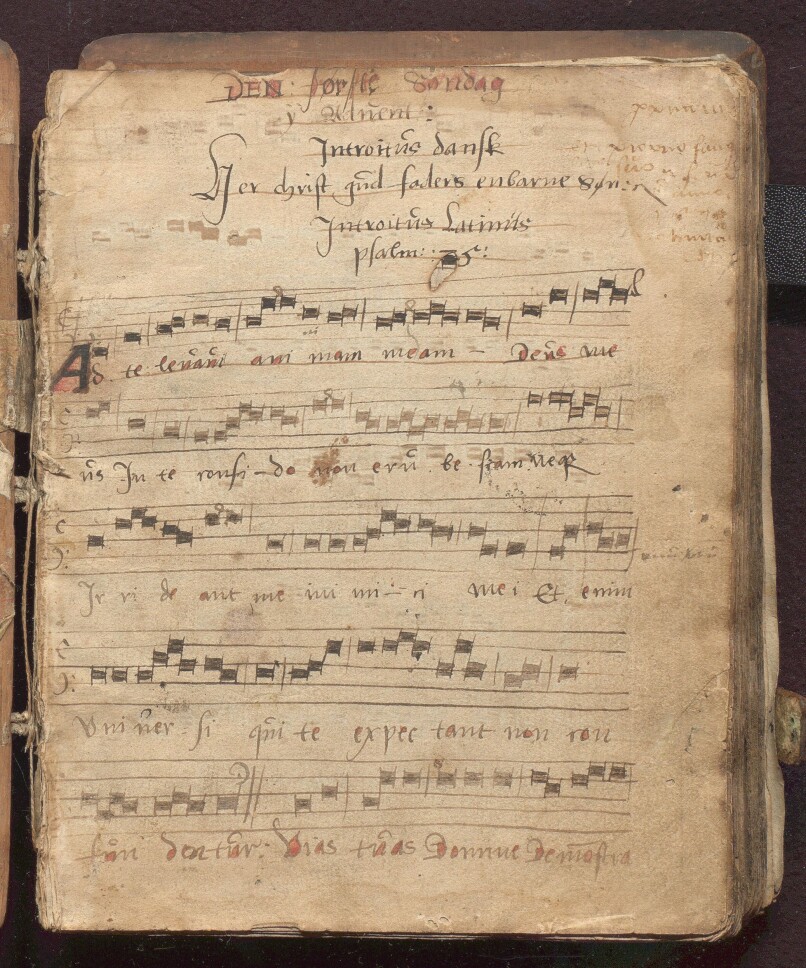 DEN første Søndag
y Advent:
Introitus dansk
Her christ gud faders enbarne Søn:
Introitus Latinus
psalm: 25:
Ad te levavi ani mam meam – Deus me
us In te confi – do non eru be scam neq
Ir ri de ant me ini mi – ci mei Et enim
Vni ver si qui te expec tant non con
fun den tur: Vias tuas Domine Demostra